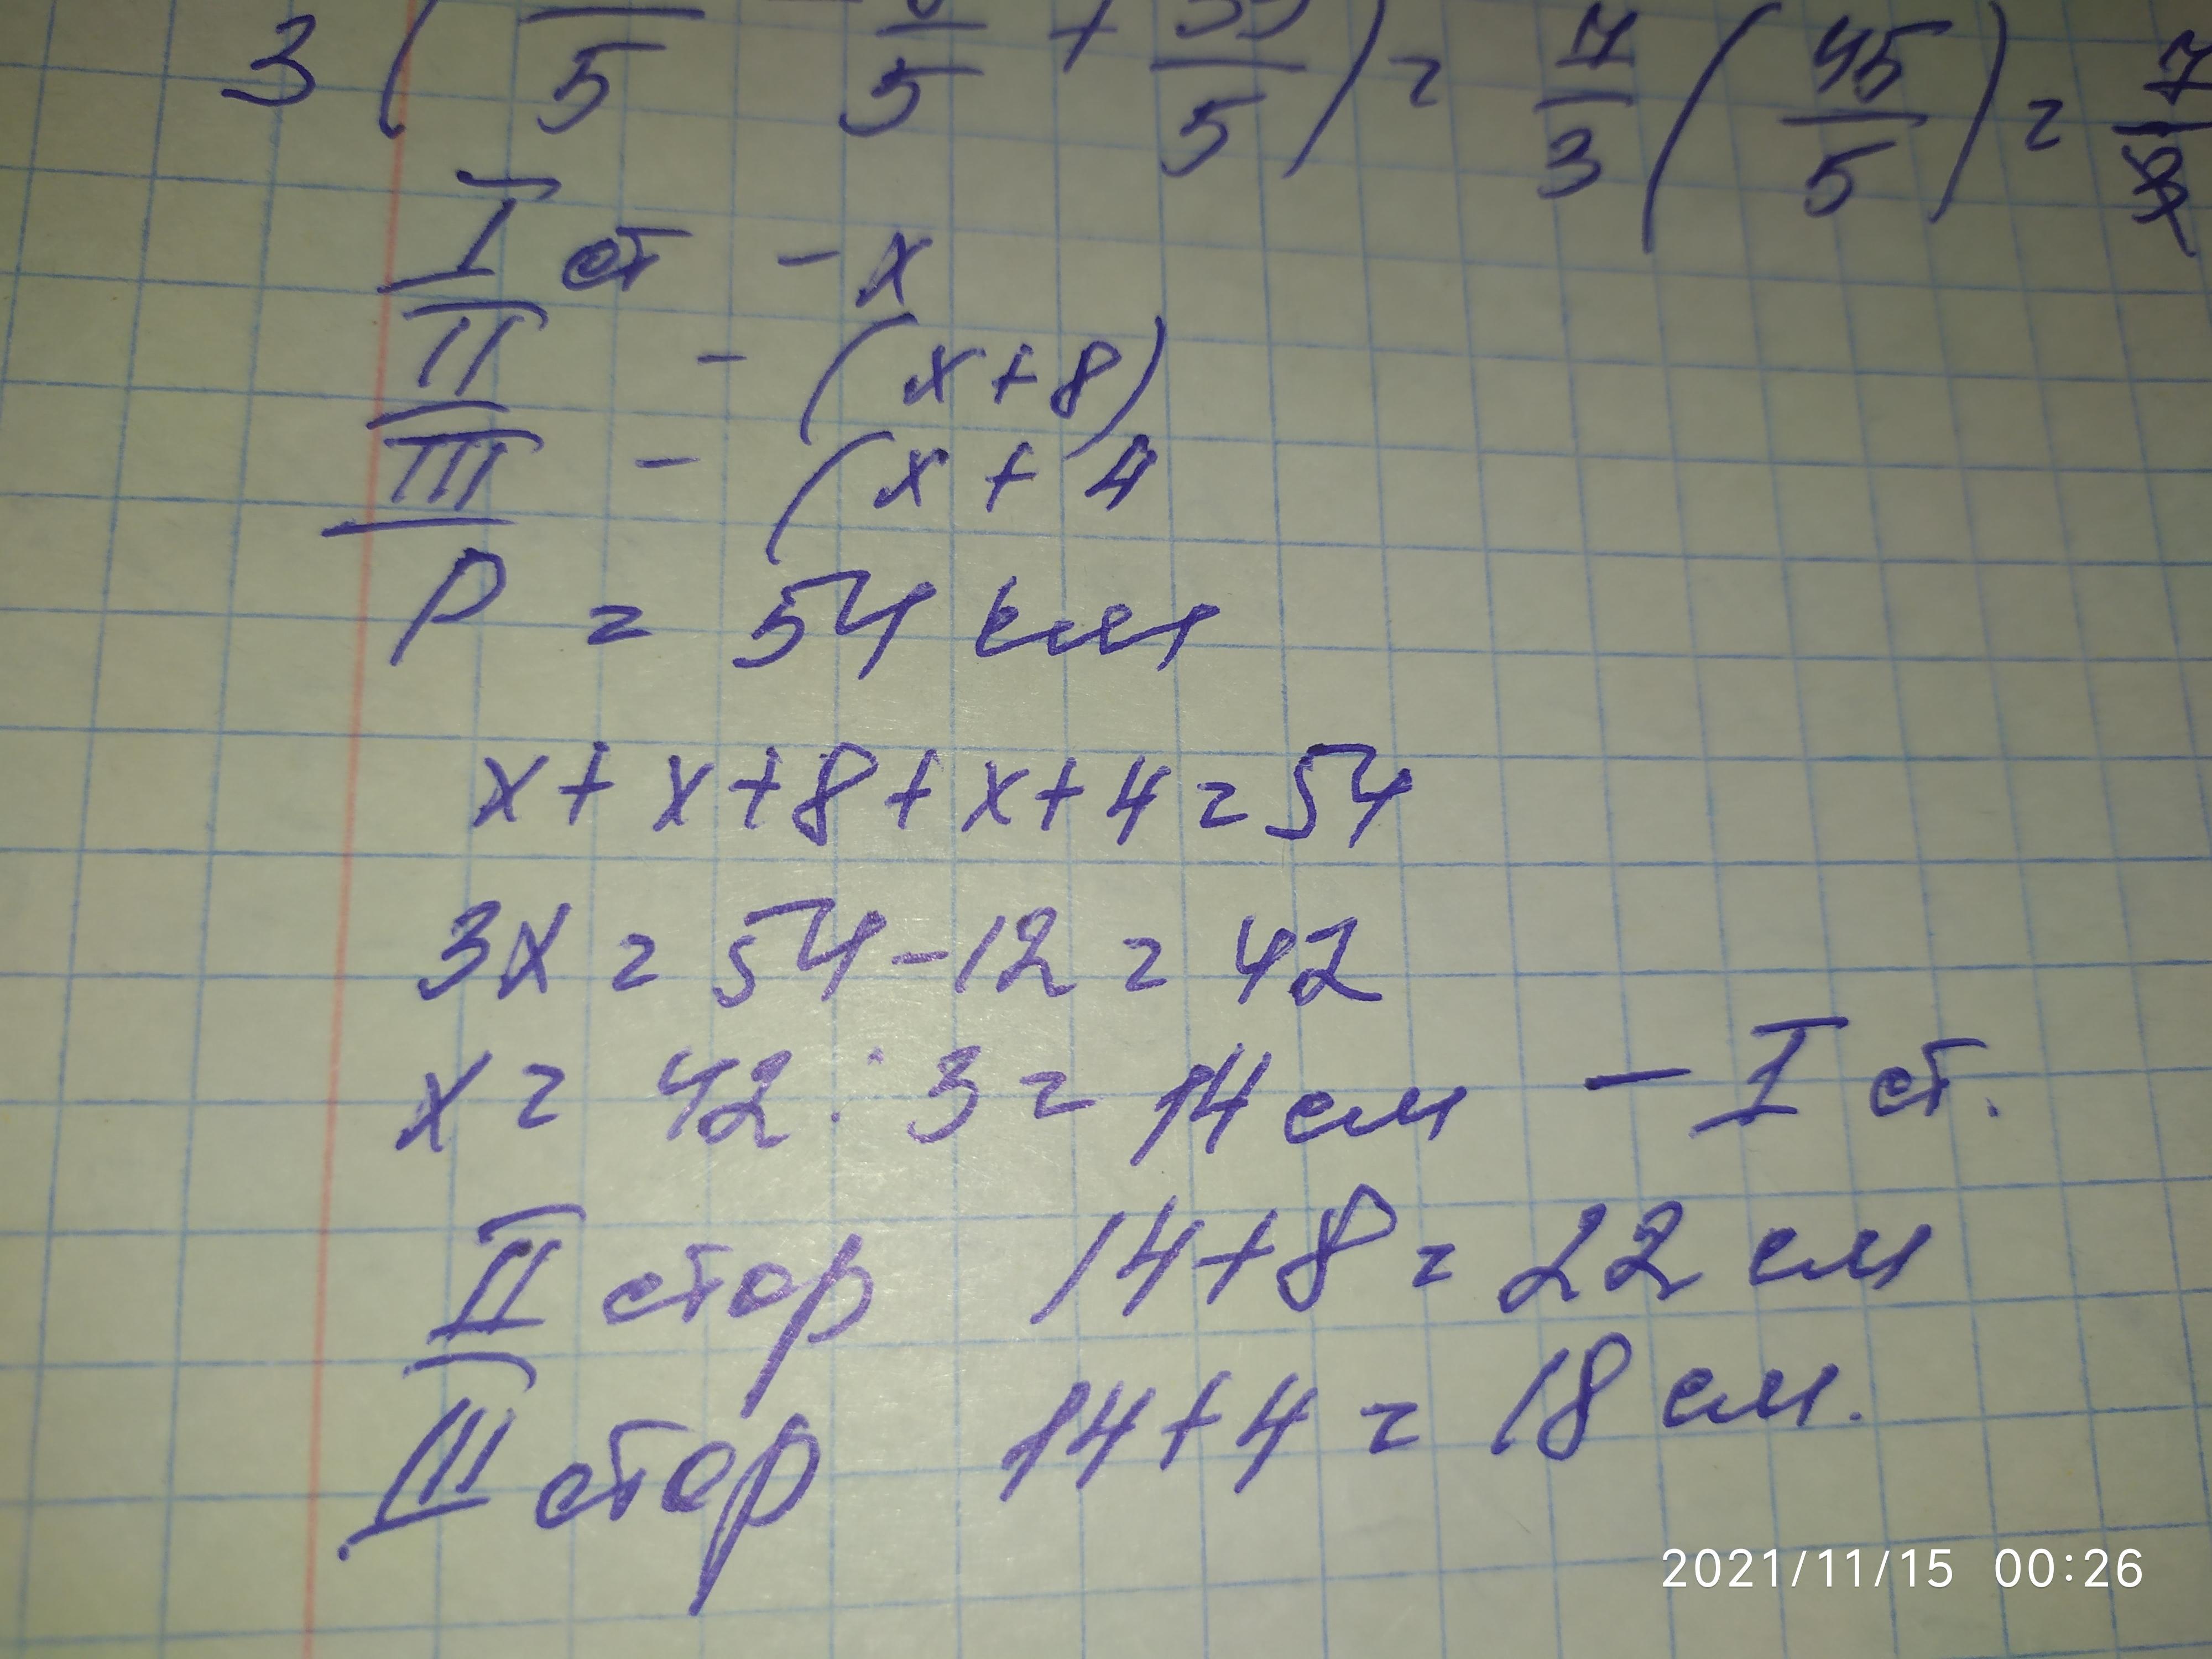 3 ( /5 - /5 + 35/5 ) = 7/3 ( 45/5 ) = 7/3
I ст - x
II - (x+8)
III - (x + 4
P = 54 см
x + x + 8 + x + 4 = 54
3x = 54 - 12 = 42
x = 42 : 3 = 14 см - I ст.
II стор 14 + 8 = 22 см
III стор 14 + 4 = 18 см.
2021/11/15 00:26